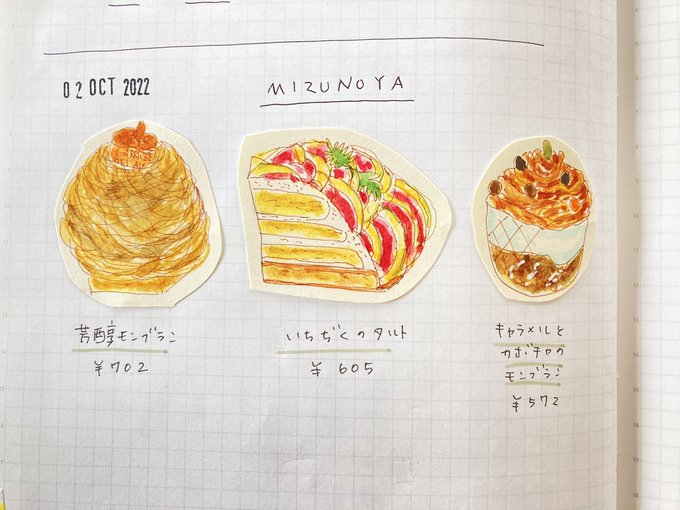 02 OCT 2022
MIZUNOYA
芳醇モンブラン
¥702
いちぢくのタルト
¥605
キャラメルと
カボチャの
モンブラン
¥572